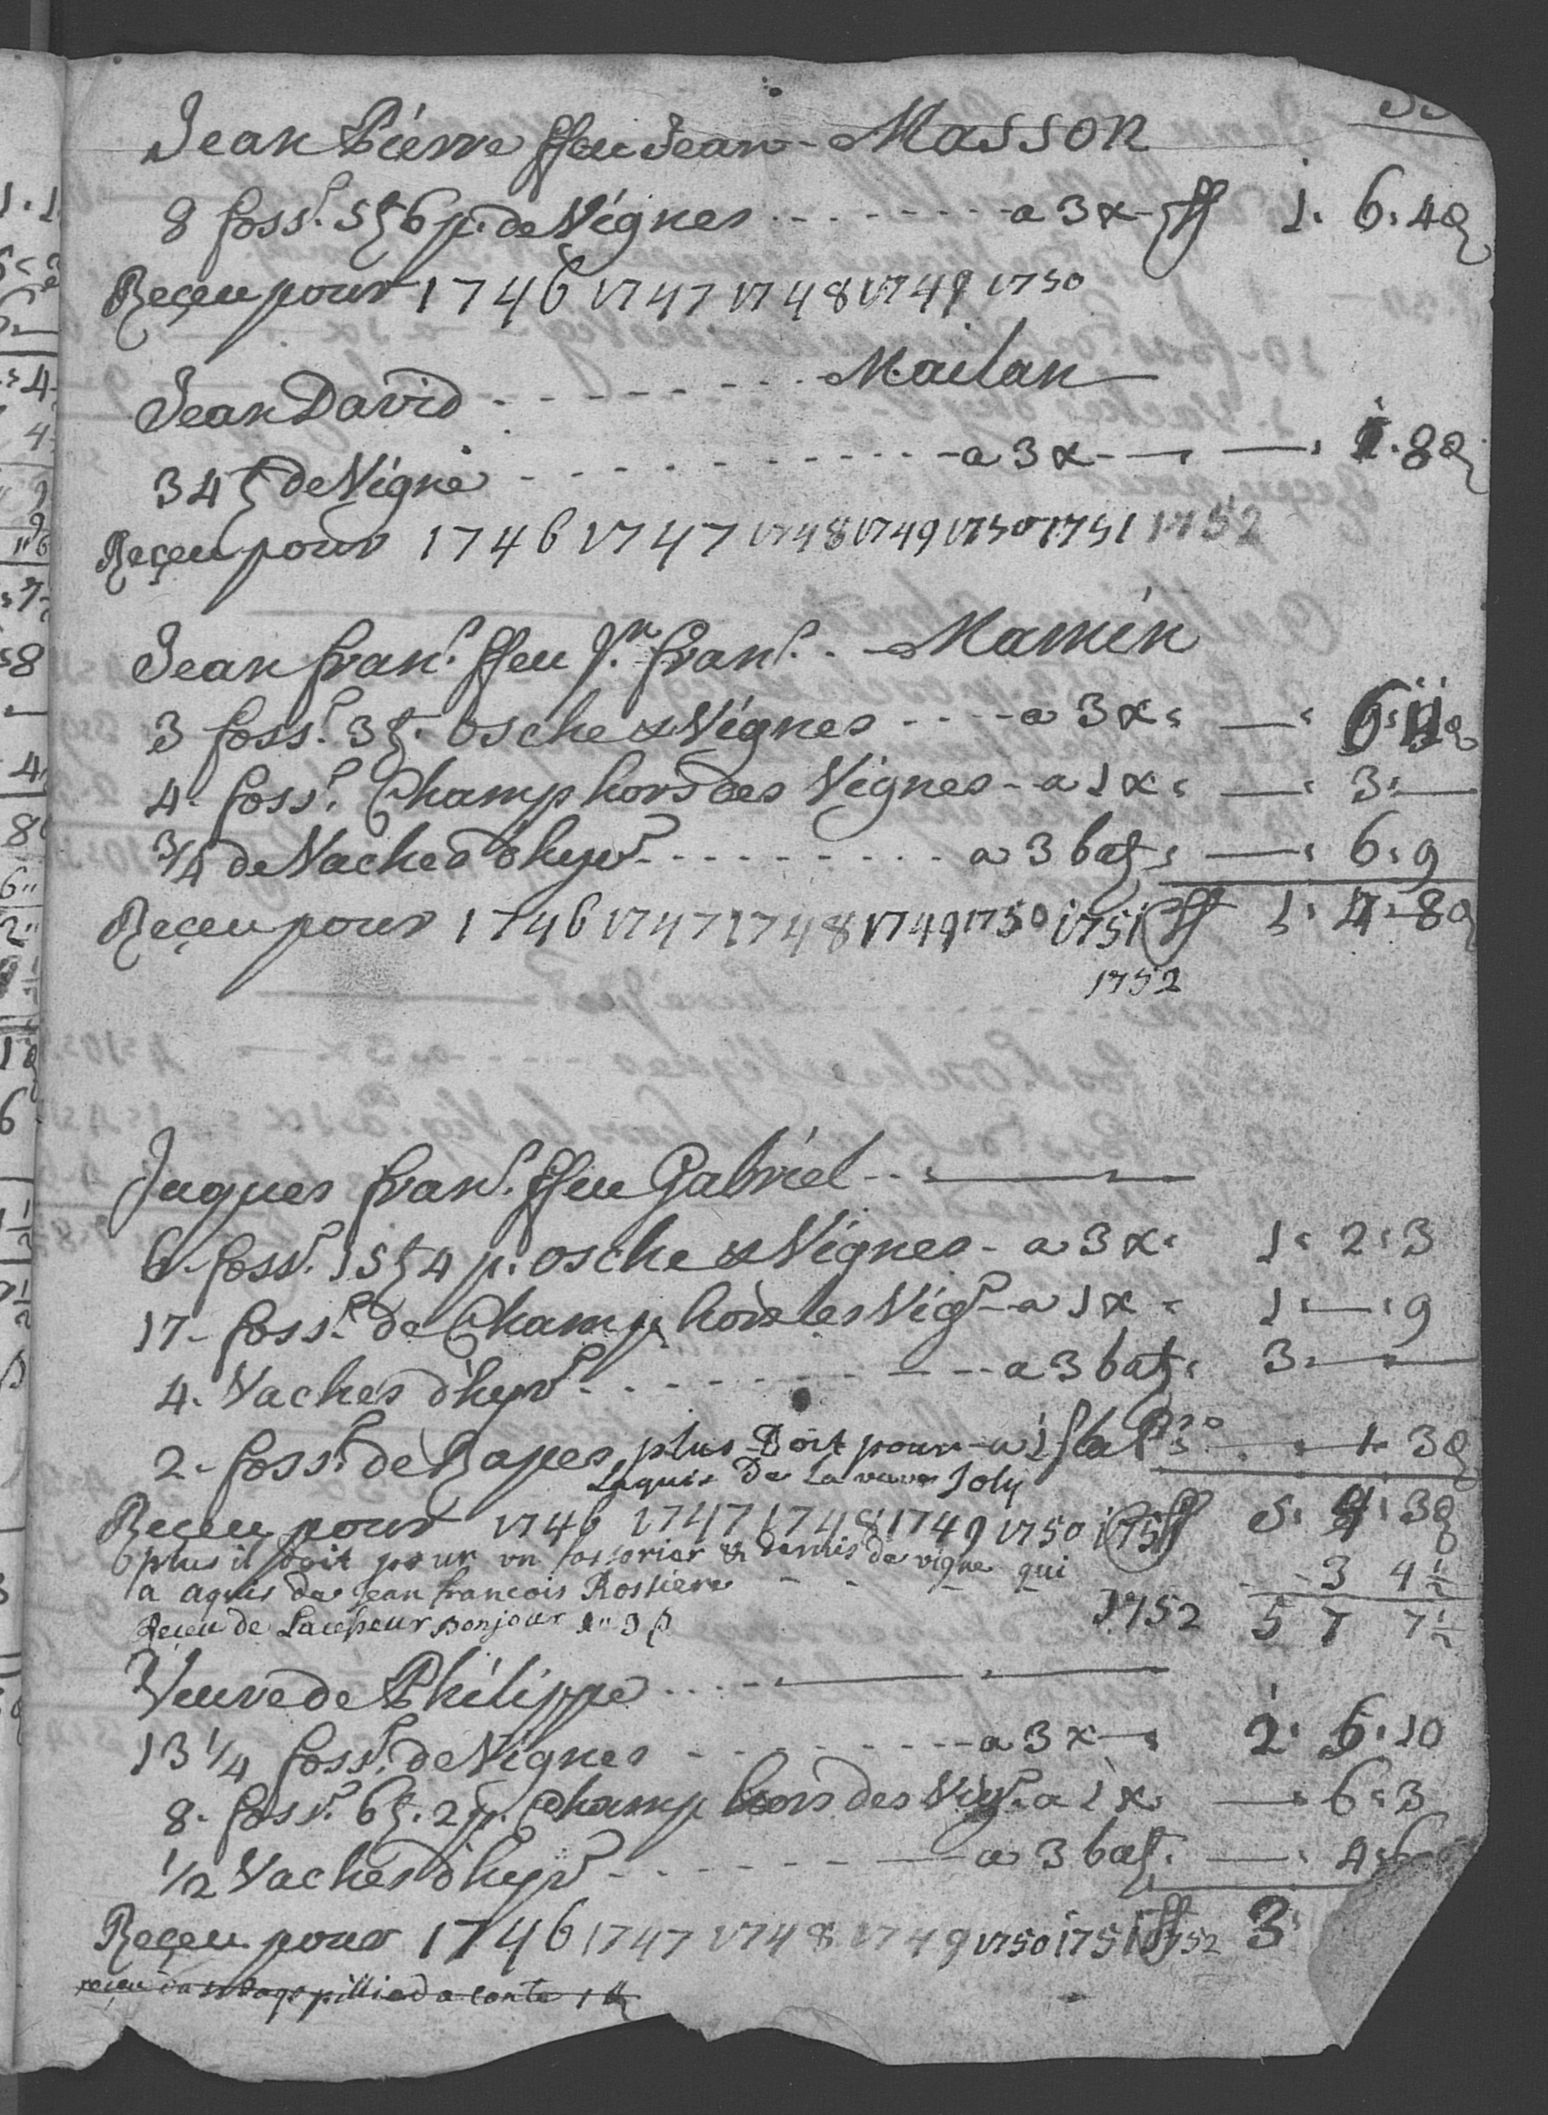 Jean Pierre ffeu Jean - Masson
8 foss.r 5 ʒ 6 p. de Vignes - - - - - - a 3 x - ff 1. 6. 4 ₰
Reçeu pour 1746 1747 1748 1749 1750
Jean David - - - - - - - - Mailan
34 ʒ de Vigne - - - - - - - - - a 3 x - — . 1. 8 ₰
Reçeu pour 1746 1747 1748 1749 1750 1751 1752
Jean fran.s ffeu J.n fran.s - - Mamin
3 foss.r 3 ʒ. osche & Vignes - - - - a 3 x : — : 6 : 11 ₰
4 - foss.r Champ hors des Vignes - a 1 x : — : 3 : —
3/4 de Vaches d'hyv.r - - - - - - - - - a 3 batʒ : — : 6 : 9
Reçeu pour 1746 1747 1748 1749 1750 1751 ff 1 : 4 : 8 ₰
1752
Jaques fran.s ffeu Gabriel - - —
6 - foss.r 15 ʒ 4 p. osche & Vignes - a 3 x : 1 : 2 : 3
17 - foss.r de Champ hors les Vig.s - a 1 x : 1 : — : 9
4 - Vaches d'hyv.r - - - - - - - - - a 3 batʒ : 3 : — —
2 - foss.r de Rapes plus Doit pour - a 1 — 1 - 3 ₰
Laquis De La veuve Joly
Reçeu pour 1746 1747 1748 1749 1750 1751 ff 5 : 4 : 3 ₰
plus il doit pour un fossorier & demis de vigne qui
a aquis de Jean francois Rossiere - - - - - 3 4 1/2
1752 5 7 7 1/2
Receu de Bonjour
Veuve de Philippe - - - - —
13 1/4 foss.r de Vignes - - - - - - - - - a 3 x — : 2 : 6 : 10
8 - foss.r 6 ʒ. 2 p. Champ hors des Vig.s a 1 x — : 6 : 3
1/2 Vaches d'hyv.r - - - - - - - a 3 batʒ : — : 4 : 6
Reçeu pour 1746 1747 1748 1749 1750 1751 ff 1752 3 :
reçeu pillied a conte 1